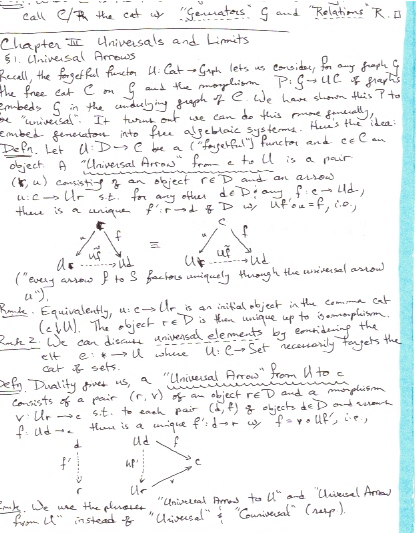 call C/R the cat w/ "Generators" G and "Relations" R. □
Chapter III Universals and Limits
§1. Universal Arrows
Recall, the forgetful functor U: Cat → Grph lets us consider, for any graph G
the free cat C on G and the morphism P: G → UC of graphs
embeds G in the underlying graph of C. We have shown this P to
be "universal". It turns out we can do this more generally,
embed generators into free algebraic systems. Here's the idea:
Defn. Let U: D → C be a ("forgetful") functor and c∈C an
object. A "Universal Arrow" from c to U is a pair
(r, u) consisting of an object r∈D and an arrow
u: c → Ur s.t. for any other d∈D; any f: c → Ud,
there is a unique f': r → d of D w/ Uf'∘u = f, i.e.,
c c
u f ≡ u f
Ur Uf' Ud Ur Uf' Ud
("every arrow f to S factors uniquely through the universal arrow
u").
Rmk. Equivalently, u: c → Ur is an initial object in the comma cat
(c↓U). The object r∈D is then unique up to isomorphism.
Rmk 2. We can discuss universal elements by considering the
elt e: * → U where U: C → Set necessarily targets the
cat of sets.
Defn. Duality gives us, a "Universal Arrow" from U to c
consists of a pair (r, v) of an object r∈D and a morphism
v: Ur → c s.t. to each pair (d, f) of objects d∈D and arrows
f: Ud → c there is a unique f': d → r w/ f = v∘Uf', i.e.,
d Ud f
f' Uf' c
r Ur v
Rmk. We use the phrases "Universal Arrow to U" and "Universal Arrow
from U" instead of "Universal" & "Couniversal" (resp).